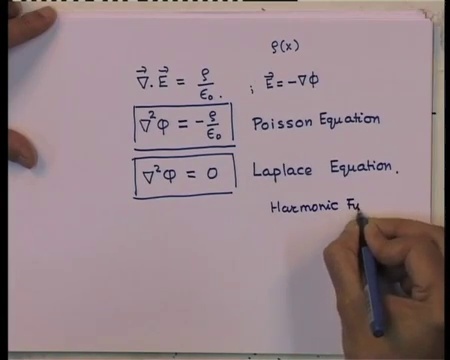 ρ(x)
∇⃗.E⃗ = ρ/ε₀. ; E⃗ = -∇Φ
∇²Φ = -ρ/ε₀ Poisson Equation
∇²Φ = 0 Laplace Equation.
Harmonic Fu